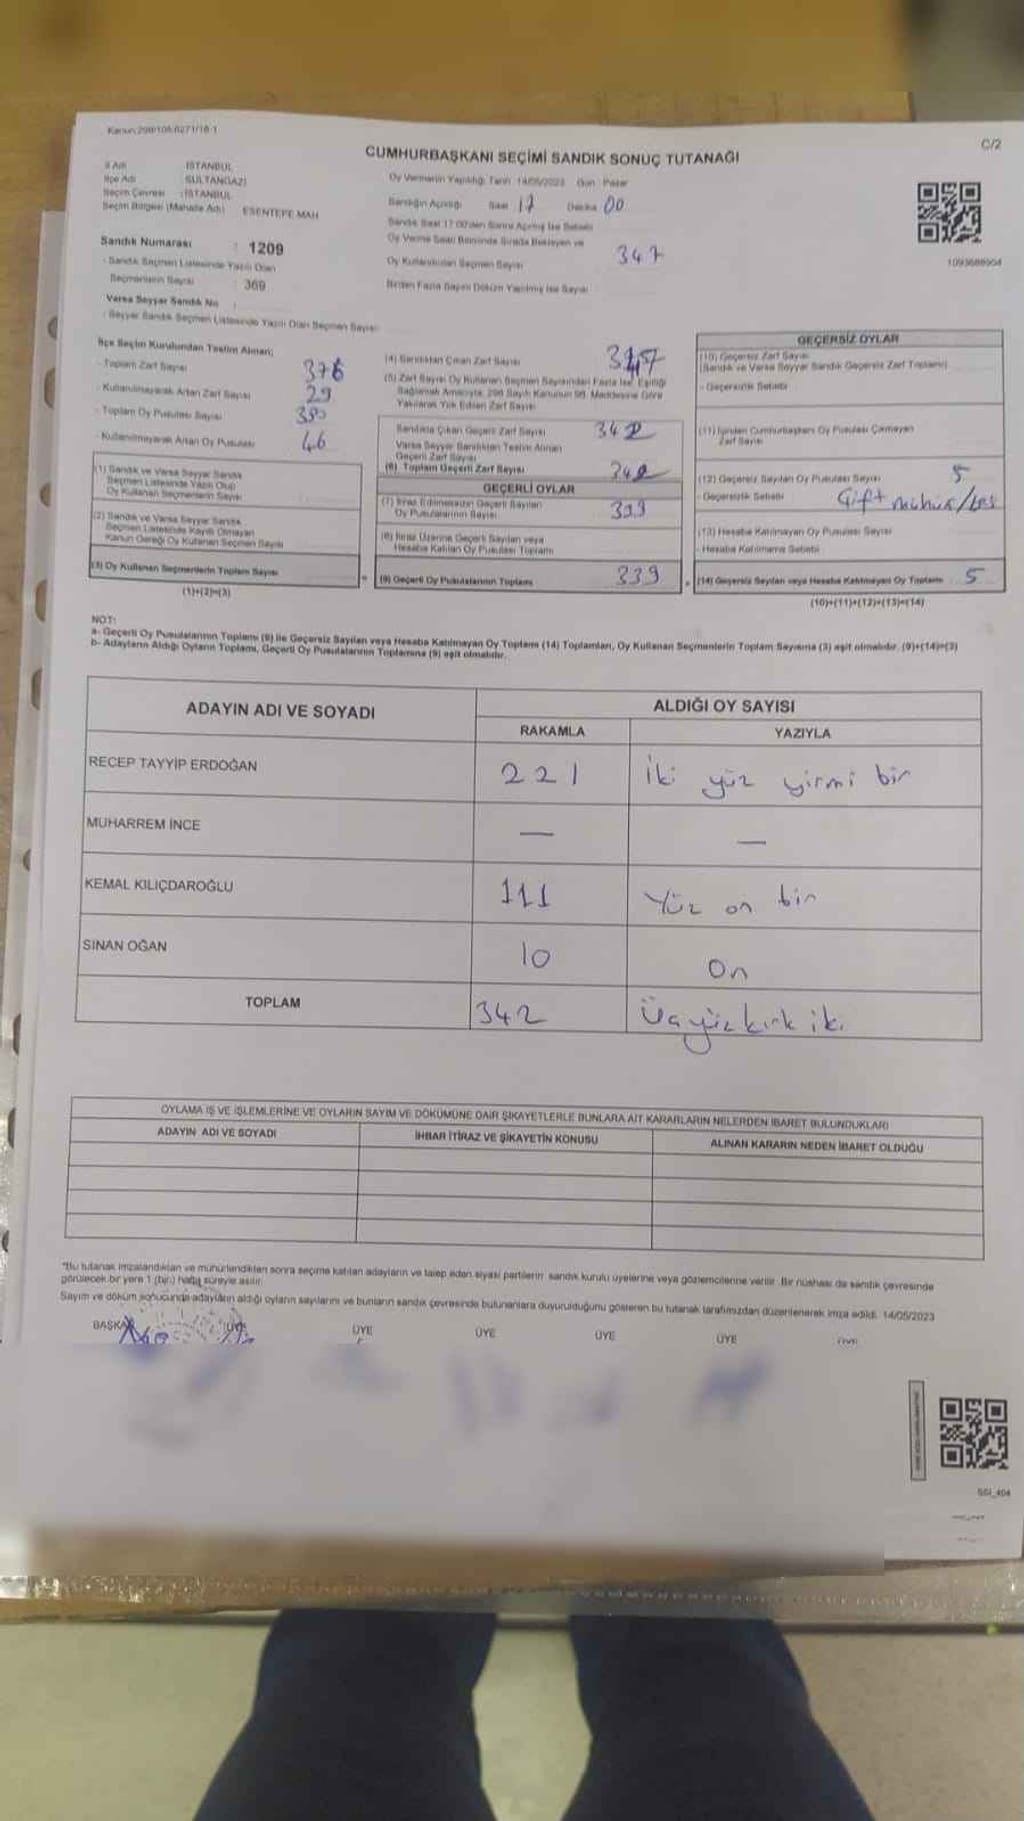 Kanun:298/105,6271/18-1
C/2
CUMHURBAŞKANI SEÇİMİ SANDIK SONUÇ TUTANAĞI
İl Adı İSTANBUL
İlçe Adı SULTANGAZİ
Seçim Çevresi :İSTANBUL
Seçim Bölgesi (Mahalle Adı) ESENTEPE MAH
Sandık Numarası : 1209
- Sandık Seçmen Listesinde Yazılı Olan
Seçmenlerin Sayısı : 369
Varsa Seyyar Sandık No :
- Seyyar Sandık Seçmen Listesinde Yazılı Olan Seçmen Sayısı
Oy Vermenin Yapıldığı Tarih 14/05/2023 Gün Pazar
Sandığın Açıldığı Saat 17 Dakika 00
Sandık Saat 17.00'den Sonra Açılmış İse Sebebi
Oy Verme Saati Bitiminde Sırada Bekleyen ve
Oy Kullandırılan Seçmen Sayısı 347
Birden Fazla Sayım Döküm Yapılmış İse Sayısı
1093688904
İlçe Seçim Kurulundan Teslim Alınan;
- Toplam Zarf Sayısı 376
- Kullanılmayarak Artan Zarf Sayısı 29
- Toplam Oy Pusulası Sayısı 380
- Kullanılmayarak Artan Oy Pusulası 46
(1) Sandık ve Varsa Seyyar Sandık
Seçmen Listesinde Yazılı Olup
Oy Kullanan Seçmenlerin Sayısı
(2) Sandık ve Varsa Seyyar Sandık
Seçmen Listesinde Kayıtlı Olmayan
Kanun Gereği Oy Kullanan Seçmen Sayısı
(3) Oy Kullanan Seçmenlerin Toplam Sayısı
(1)+(2)=(3)
(4) Sandıktan Çıkan Zarf Sayısı 347
(5) Zarf Sayısı Oy Kullanan Seçmen Sayısından Fazla İse, Eşitliği
Sağlamak Amacıyla, 298 Sayılı Kanunun 98. Maddesine Göre
Yakılarak Yok Edilen Zarf Sayısı
Sandıkta Çıkan Geçerli Zarf Sayısı 342
Varsa Seyyar Sandıktan Teslim Alınan
Geçerli Zarf Sayısı
(6) Toplam Geçerli Zarf Sayısı 342
GEÇERLİ OYLAR
(7) İtiraz Edilmeksizin Geçerli Sayılan
Oy Pusulalarının Sayısı 339
(8) İtiraz Üzerine Geçerli Sayılan veya
Hesaba Katılan Oy Pusulası Toplamı
(9) Geçerli Oy Pusulalarının Toplamı 339
GEÇERSİZ OYLAR
(10) Geçersiz Zarf Sayısı
(Sandık ve Varsa Seyyar Sandık Geçersiz Zarf Toplamı)
- Geçersizlik Sebebi
(11) İçinden Cumhurbaşkanı Oy Pusulası Çıkmayan
Zarf Sayısı
(12) Geçersiz Sayılan Oy Pusulası Sayısı 5
- Geçersizlik Sebebi Çift mühür/
(13) Hesaba Katılmayan Oy Pusulası Sayısı
- Hesaba Katılmama Sebebi
(14) Geçersiz Sayılan veya Hesaba Katılmayan Oy Toplamı 5
(10)+(11)+(12)+(13)=(14)
NOT:
a- Geçerli Oy Pusulalarının Toplamı (9) ile Geçersiz Sayılan veya Hesaba Katılmayan Oy Toplamı (14) Toplamları, Oy Kullanan Seçmenlerin Toplam Sayısına (3) eşit olmalıdır. (9)+(14)=(3)
b- Adayların Aldığı Oyların Toplamı, Geçerli Oy Pusulalarının Toplamına (9) eşit olmalıdır.
ADAYIN ADI VE SOYADI ALDIĞI OY SAYISI
RAKAMLA YAZIYLA
RECEP TAYYİP ERDOĞAN 221 İki yüz yirmi bir
MUHARREM İNCE — —
KEMAL KILIÇDAROĞLU 111 Yüz on bir
SİNAN OĞAN 10 On
TOPLAM 342 Üçyüz kırk iki
OYLAMA İŞ VE İŞLEMLERİNE VE OYLARIN SAYIM VE DÖKÜMÜNE DAİR ŞİKAYETLERLE BUNLARA AİT KARARLARIN NELERDEN İBARET BULUNDUKLARI
ADAYIN ADI VE SOYADI İHBAR İTİRAZ VE ŞİKAYETİN KONUSU ALINAN KARARIN NEDEN İBARET OLDUĞU
"Bu tutanak imzalandıktan ve mühürlendikten sonra seçime katılan adayların ve talep eden siyasi partilerin sandık kurulu üyelerine veya gözlemcilerine verilir. Bir nüshası da sandık çevresinde
görülecek bir yere 1 (bir) hafta süreyle asılır.
Sayım ve döküm sonucunda adayların aldığı oyların sayılarını ve bunların sandık çevresinde bulunanlara duyurulduğunu gösteren bu tutanak tarafımızdan düzenlenerek imza edildi. 14/05/2023
BAŞKAN ÜYE ÜYE ÜYE ÜYE
SGI_404